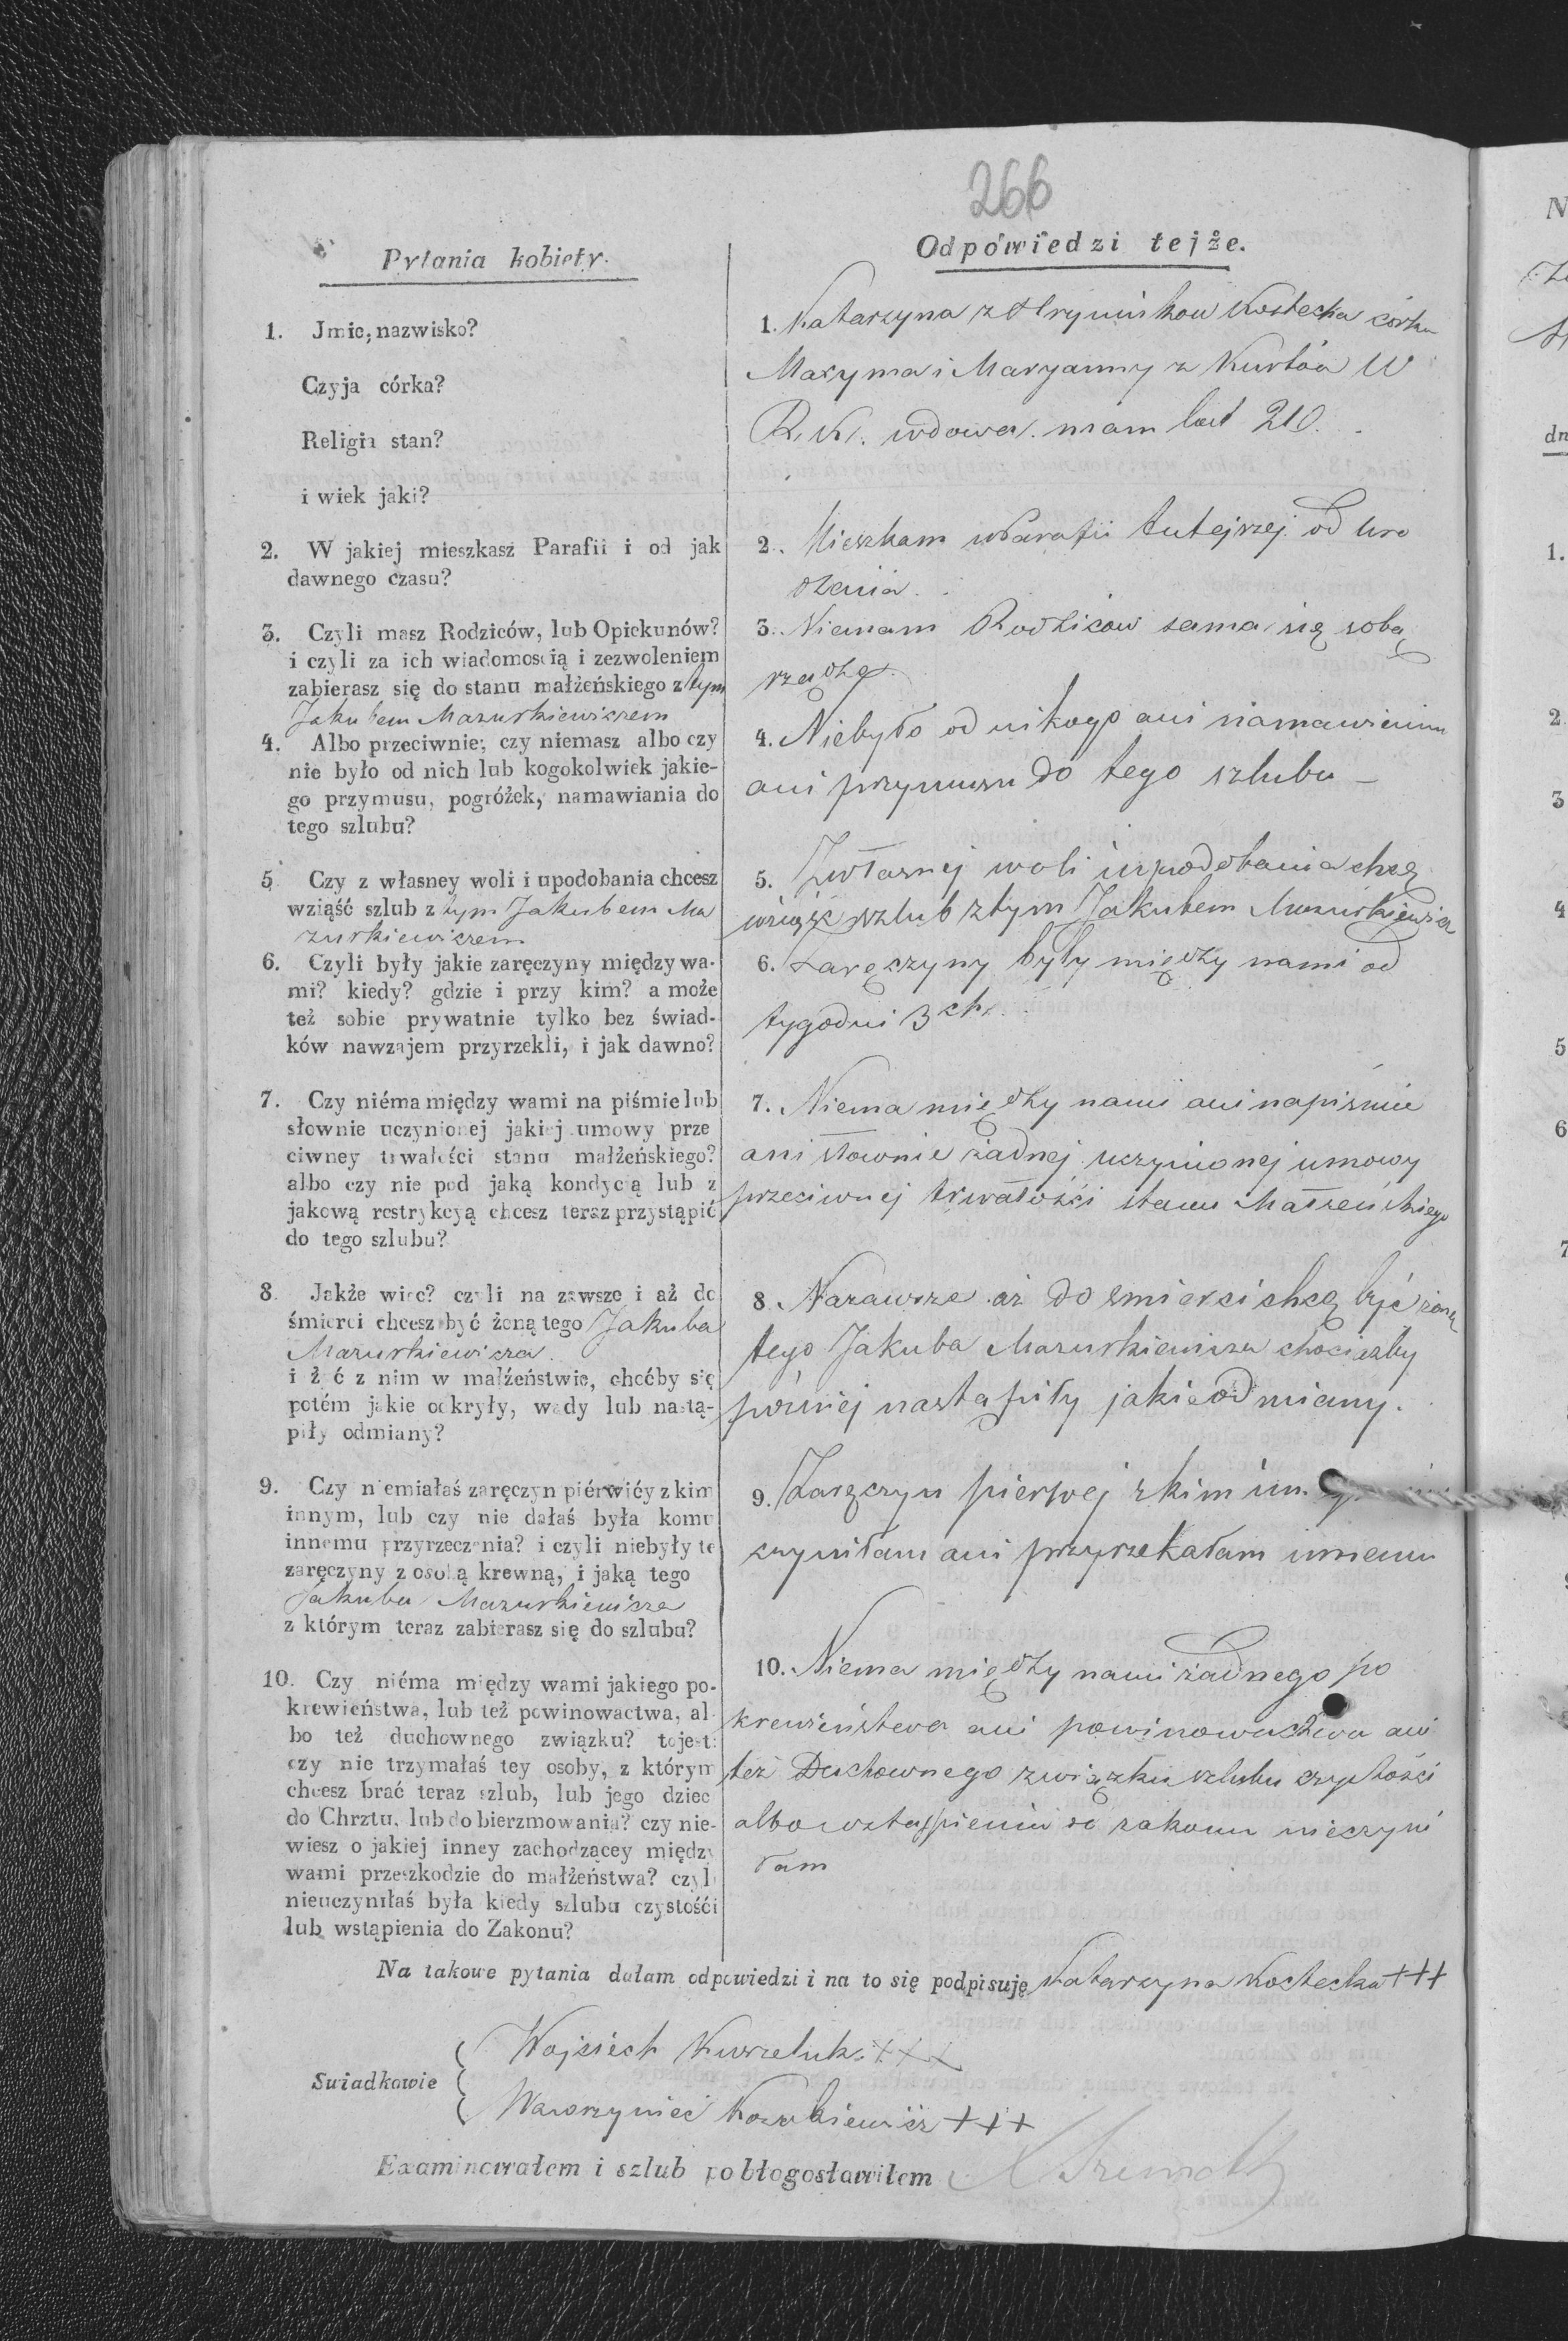 266
Pytania kobiety.
1. Jmie, nazwisko?
Czyja córka?
Religia stan?
i wiek jaki?
2. W jakiej mieszkasz Parafii i od jak
dawnego czasu?
3. Czyli masz Rodziców, lub Opiekunów?
i czyli za ich wiadomością i zezwoleniem
zabierasz się do stanu małżeńskiego z tym
Jakubem Mazurkiewiczem
4. Albo przeciwnie; czy niemasz albo czy
nie było od nich lub kogokolwiek jakie-
go przymusu, pogróżek, namawiania do
tego szlubu?
5 Czy z własney woli i upodobania chcesz
wziąść szlub z tym Jakubem Ma
zurkiewiczem
6. Czyli były jakie zaręczyny między wa-
mi? kiedy? gdzie i przy kim? a może
też sobie prywatnie tylko bez świad-
ków nawzajem przyrzekli, i jak dawno?
7. Czy niéma między wami na piśmie lub
słownie uczynionej jakiej umowy prze
ciwney trwałości stanu małżeńskiego?
albo czy nie pod jaką kondycią lub z
jakową restrykcyą chcesz teraz przystąpić
do tego szlubu?
8. Jakże więc? czyli na zawsze i aż do
śmierci chcesz być żoną tego Jakuba
Mazurkiewicza.
i żyć z nim w małżeństwie, choćby się
potém jakie odkryły, wady lub nastą-
piły odmiany?
9. Czy niemiałaś zaręczyn piérwićy z kim
innym, lub czy nie dałaś była komu
innemu przyrzeczenia? i czyli niebyły te
zaręczyny z osobą krewną, i jaką tego
Jakuba Mazurkiewicza
z którym teraz zabierasz się do szlubu?
10. Czy niéma między wami jakiego po-
krewieństwa, lub też powinowactwa, al-
bo też duchownego związku? tojest:
czy nie trzymałaś tey osoby, z którym
chcesz brać teraz szlub, lub jego dziec
do Chrztu, lub do bierzmowania? czy nie-
wiesz o jakiej inney zachodzącey między
wami przeszkodzie do małżeństwa? czyli
nieuczyniłaś była kiedy szlubu czystośći
lub wstąpienia do Zakonu?
Odpowiedzi tejże.
1. Katarzyna z Kostecka córka
Maxyma i Maryanny z
R. K. wdowa. mam lat
2. Mieszkam w Parafii tutejszej od uro
dzenia.
3. Niemam Rodziców sama się sobą
rządzę.
4. Niebyło od nikogo ani namawienia
ani przymusu do tego szlubu –
5. Zwłasnej woli i upodobania chcę
wziąść szlub z tym Jakubem Mazurkiewicz
6. Zaręczyny były między nami od
tygodni 3ch.
7. Niema między nami ani napiśmie
ani słownie żadnej uczynionej umowy
przeciwnej trwałości stanu Małżeńskiego
8. Nazawsze aż do smierci chcę być żoną
tego Jakuba Mazurkiewicza chociażby
póżniej nastąpiły jakie odmiany.
9. Zaręczyn pierwej zkim
czyniłam ani przyrzekałam innemu
10. Niema między nami żadnego po
krewieństwa ani powinowactwa ani
też Duchownego związku szlubu czystości
albo wstąpienia do zakonu nieczyni
łam
Na takowe pytania dałam odpowiedzi i na to się podpisuję Katarzyna Kostecka +++
Swiadkowie
Wojciech +++
Wawrzyniec +++
Examinowałem i szlub pobłogosławiłem